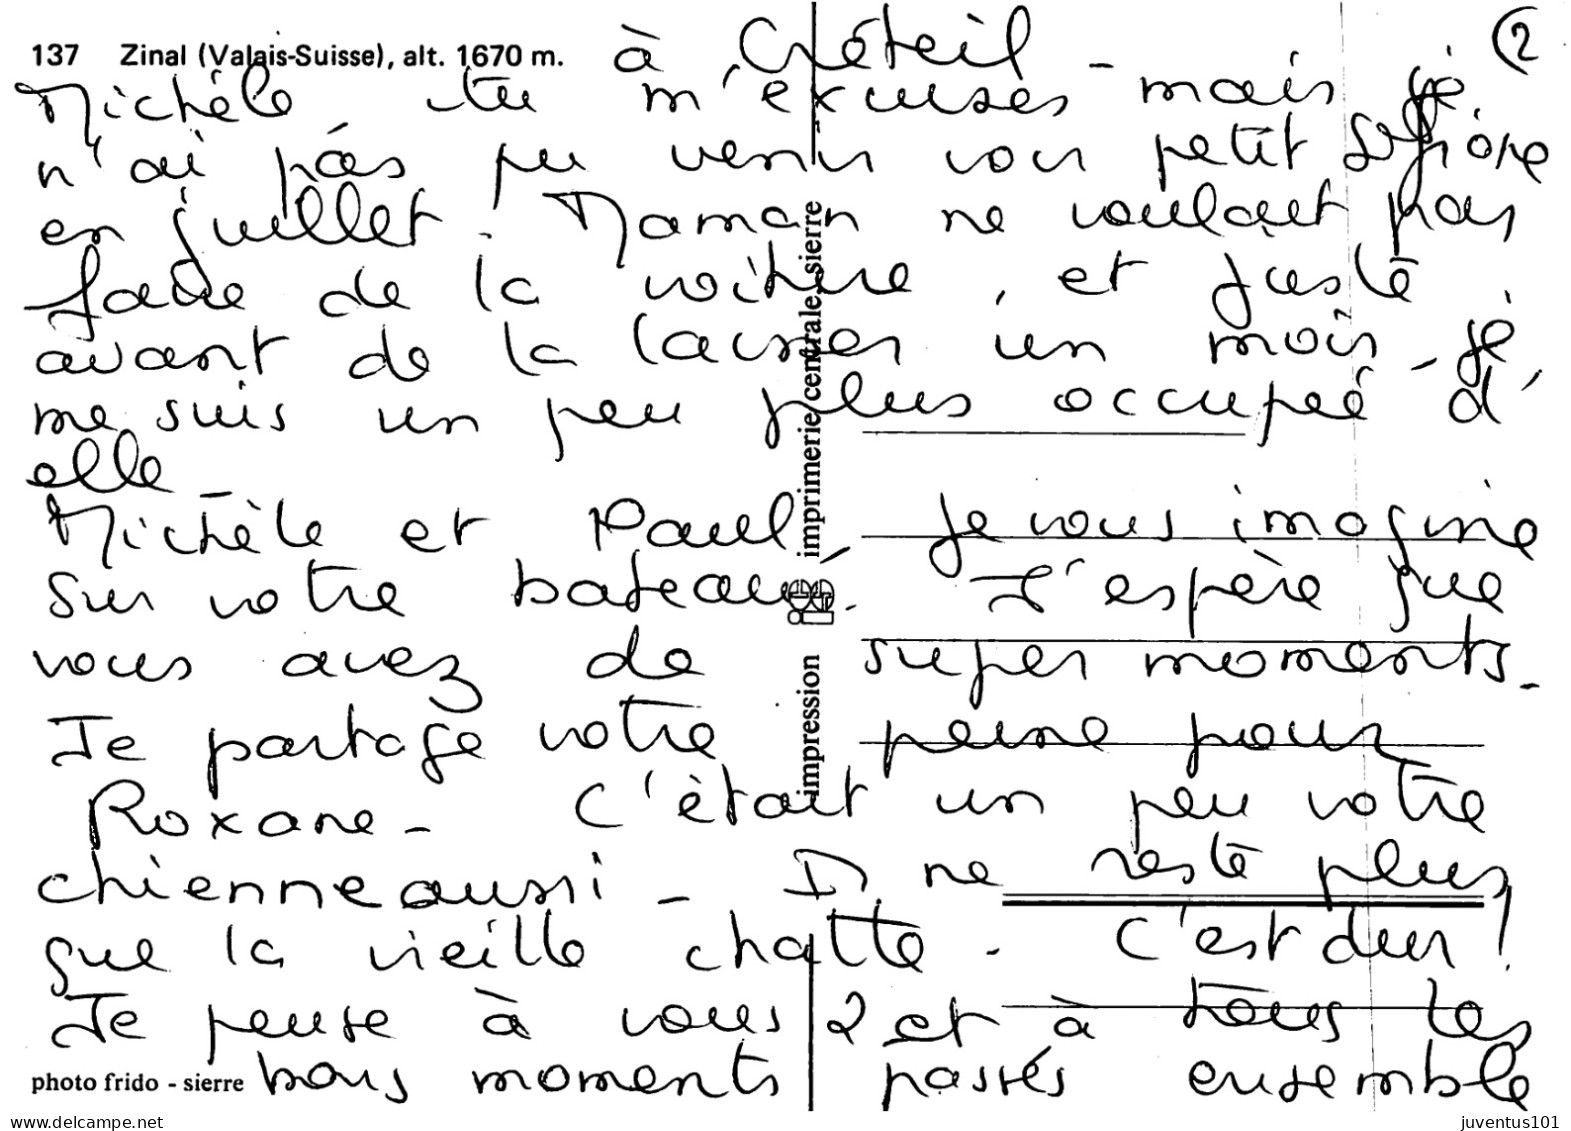 137 Zinal (Valais-Suisse), alt. 1670 m.
à Créteil - 2
Michèle tu m'excuses mais je
n'ai pas pu venir voir petit
en juillet. Maman ne voulait pas
faire de la voiture, et juste
avant de la laisser un mois, je
me suis un peu plus occupée d'
elle
Michèle et Paul, je vous imagine
sur votre bateau. J'espère que
vous avez de super moments.
Je partage votre peine pour
Roxane - C'était un peu votre
chienne aussi - Il ne reste plus
que la vieille chatte - C'est dur !
Je pense à vous 2 et à tous les
bons moments passés ensemble
photo frido - sierre
impression imprimerie centrale, sierre
www.delcampe.net
juventus101